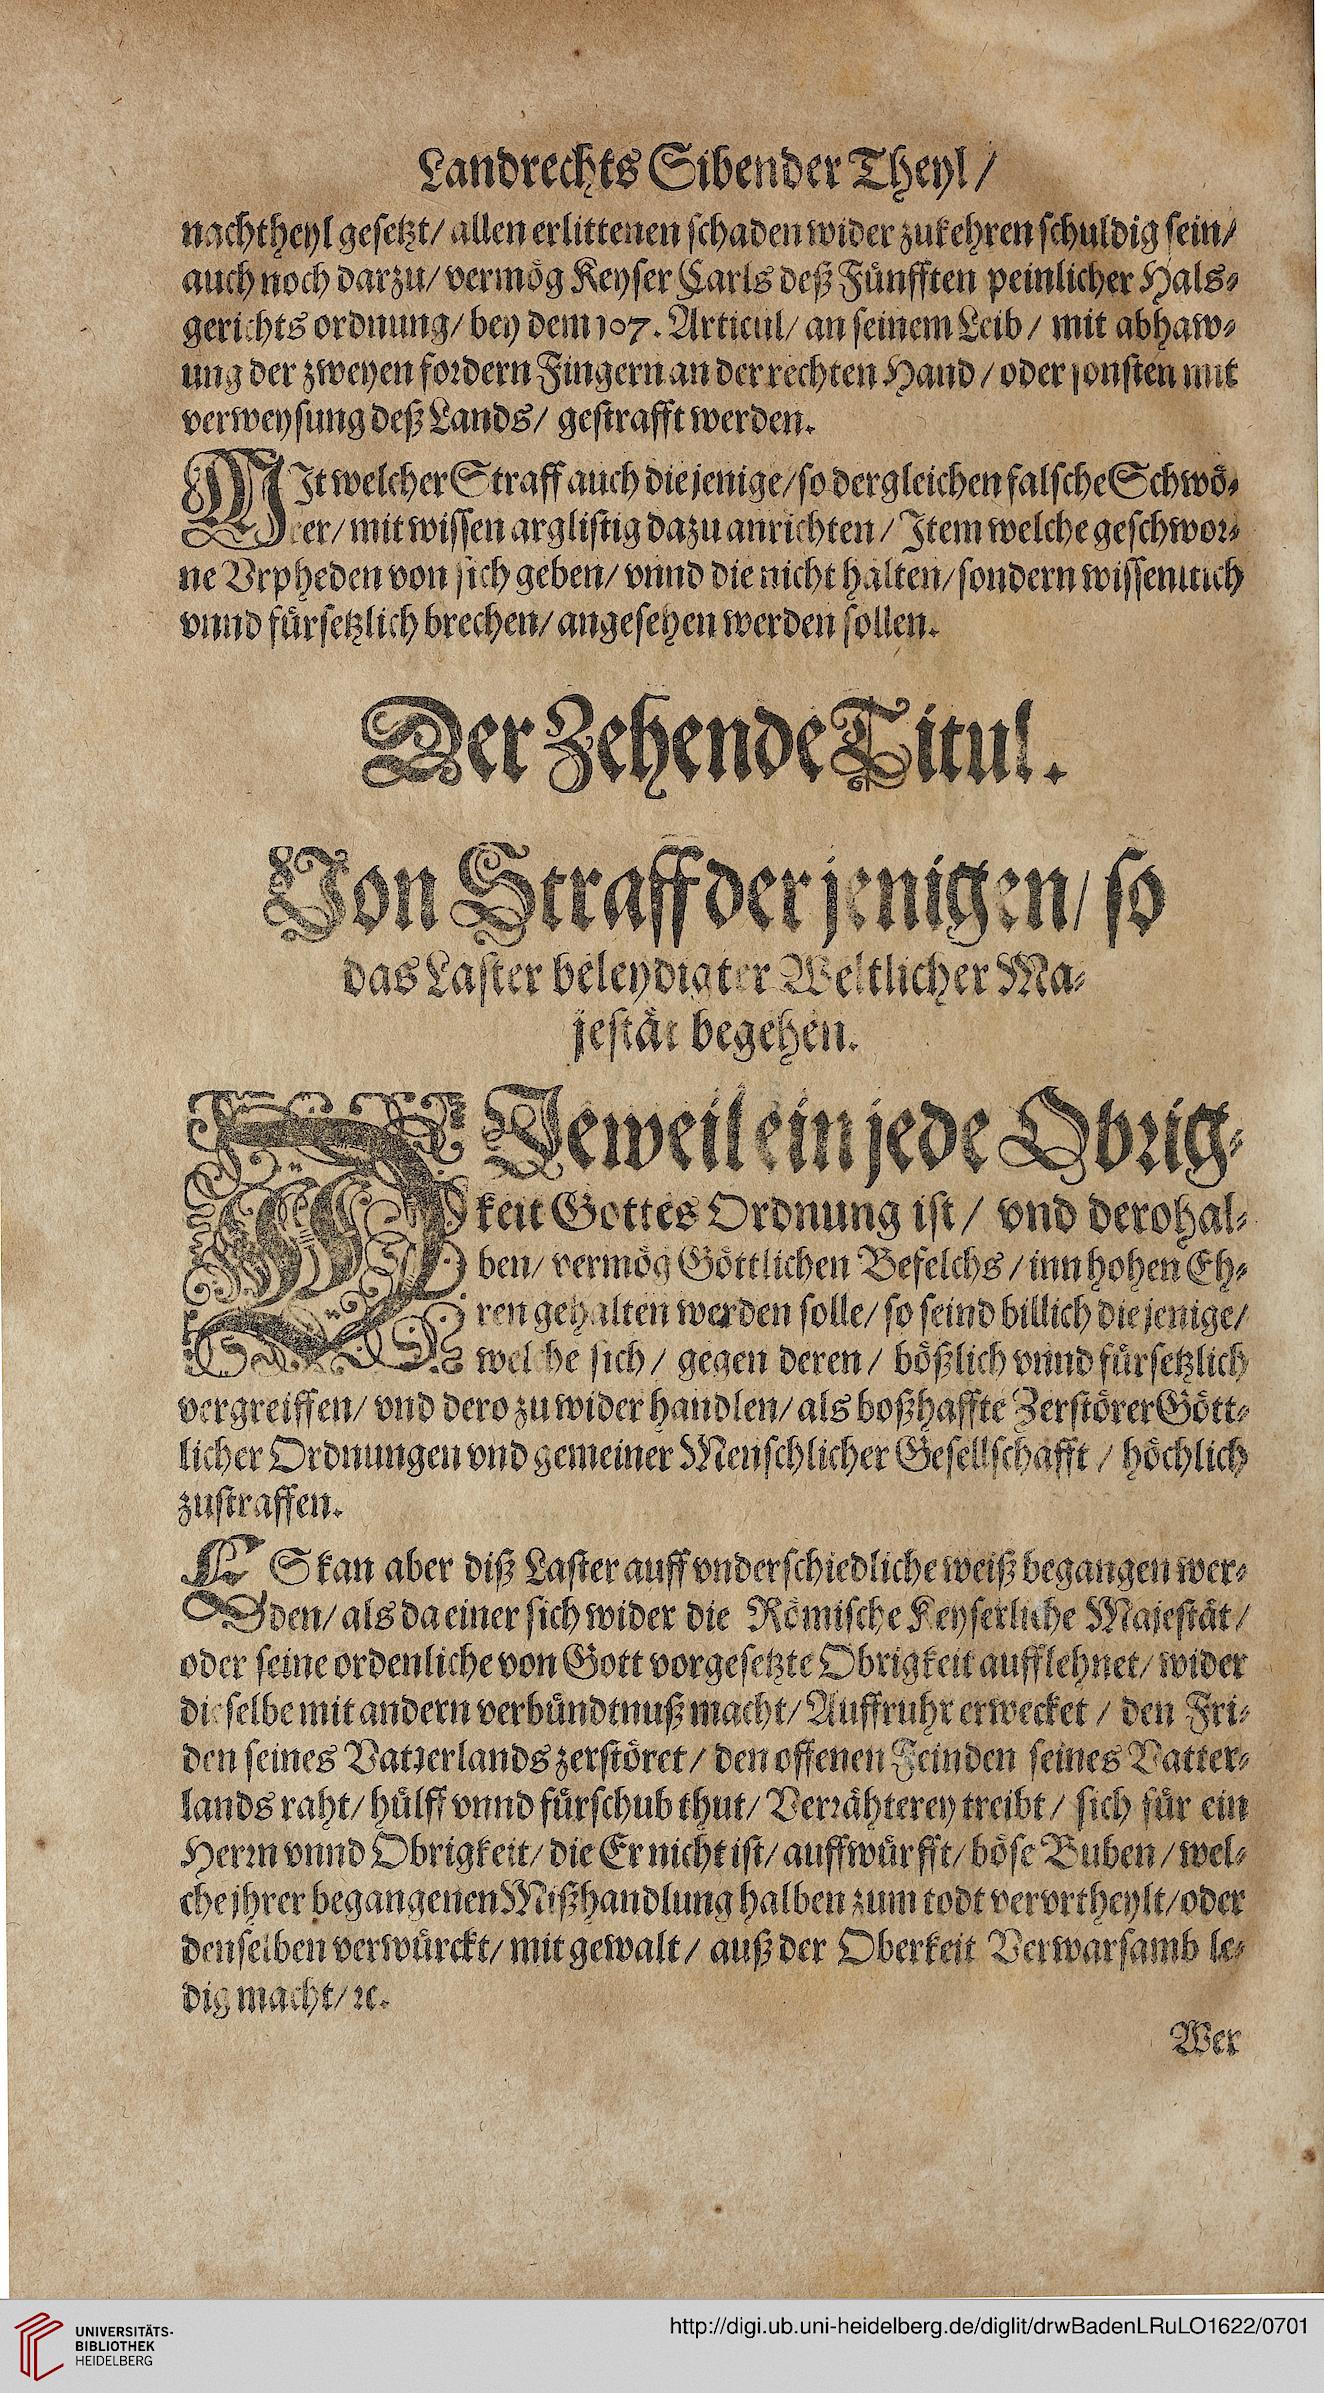 Landrechts Sibender Theyl /
nachtheyl gesetzt/ allen erlittenen schaden wider zukehren schuldig sein/
auch noch darzu/ vermög Keyser Carls deß Fünfften peinlicher Hals⸗
gerichts ordnung/ bey dem 107. Articul/ an seinem Leib / mit abhaw⸗
ung der zweyen fordern Fingern an der rechten Hand / oder sonsten mit
verweysung deß Lands/ gestrafft werden.
MIt welcher Straff auch die jenige/ so dergleichen falsche Schwö⸗
rer/ mit wissen arglistig dazu anrichten / Item welche geschwor⸗
ne Vrpheden von sich geben/ vnnd die nicht halten/ sondern wissentlich
vnnd fürsetzlich brechen/ angesehen werden sollen.
Der Zehende Titul.
Von Straff der jenigen/ so
das Laster beleydigter Weltlicher Ma⸗
jestät begehen.
DJeweil ein jede Obrig⸗
keit Gottes Ordnung ist / vnd derohal⸗
ben/ vermög Göttlichen Befelchs / inn hohen Eh⸗
ren gehalten werden solle/ so seind billich die jenige/
welche sich / gegen deren / bößlich vnnd fürsetzlich
vergreiffen/ vnd dero zu wider handlen/ als boßhaffte Zerstörer Gött⸗
licher Ordnungen vnd gemeiner Menschlicher Gesellschafft / höchlich
zustraffen.
ES kan aber diß Laster auff vnderschiedliche weiß begangen wer⸗
den/ als da einer sich wider die Römische Keyserliche Majestät /
oder seine ordenliche von Gott vorgesetzte Obrigkeit aufflehnet/ wider
dieselbe mit andern verbündtnuß macht/ Auffruhr erwecket / den Fri⸗
den seines Vatterlands zerstöret / den offenen Feinden seines Vatter⸗
lands raht/ hülff vnnd fürschub thut/ Verrähterey treibt / sich für ein
Herrn vnnd Obrigkeit/ die Er nicht ist/ auffwürfft/ böse Buben / wel⸗
che jhrer begangenen Mißhandlung halben zum todt vervrtheylt/ oder
denselben verwürckt/ mit gewalt / auß der Oberkeit Verwarsamb le⸗
dig macht/ ꝛc.
Wer
UNIVERSITÄTS-
BIBLIOTHEK
HEIDELBERG
http://digi.ub.uni-heidelberg.de/diglit/drwBadenLRuLO1622/0701